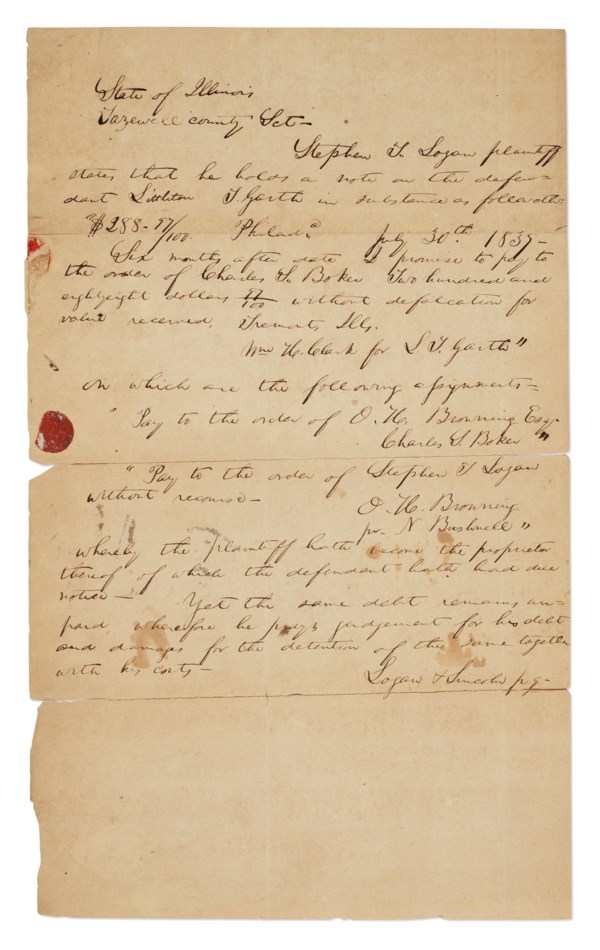 State of Illinois
Tazewell county Sct—
Stephen T. Logan plaintiff
states that he holds a note on the defen=
dant Littleton T. Garth in substance as follows
"$288-97/100. Philada July 30th 1839—
Six months after date I promise to pay to
the order of Charles S. Boker Two hundred and
eightyeight dollars 97/100 without defalcation for
value received. Tremont, Ills.
Wm H. Clark for L. T. Garth"
on which are the following assignments=
"Pay to the order of O. H. Browning Esq.
Charles S. Boker"
"Pay to the order of Stephen T Logan
without recourse—
O. H. Browning
pr. N Bushnell"
whereby the plaintiff hath become the proprietor
thereof of which the defendant hath had due
notice— Yet the same debt remains un=
paid, wherefore he prays judgement for his debt
and damages for the detention of the same together
with his costs—
Logan & Lincoln p.q—